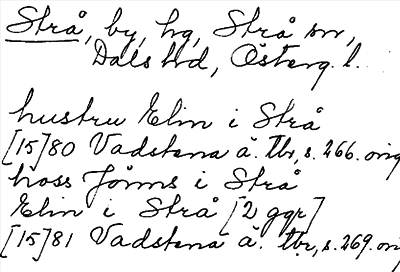 Strå, by, hg, Strå sn,
Dals hd, Österg. l.
hustru Elin i Strå
[15]80 Vadstena ä. Tbr, s. 266. orig
hoss Jöns i Strå
Elin i Strå [2 ggr]
[15]81 Vadstena ä. Tbr, s. 269. orig